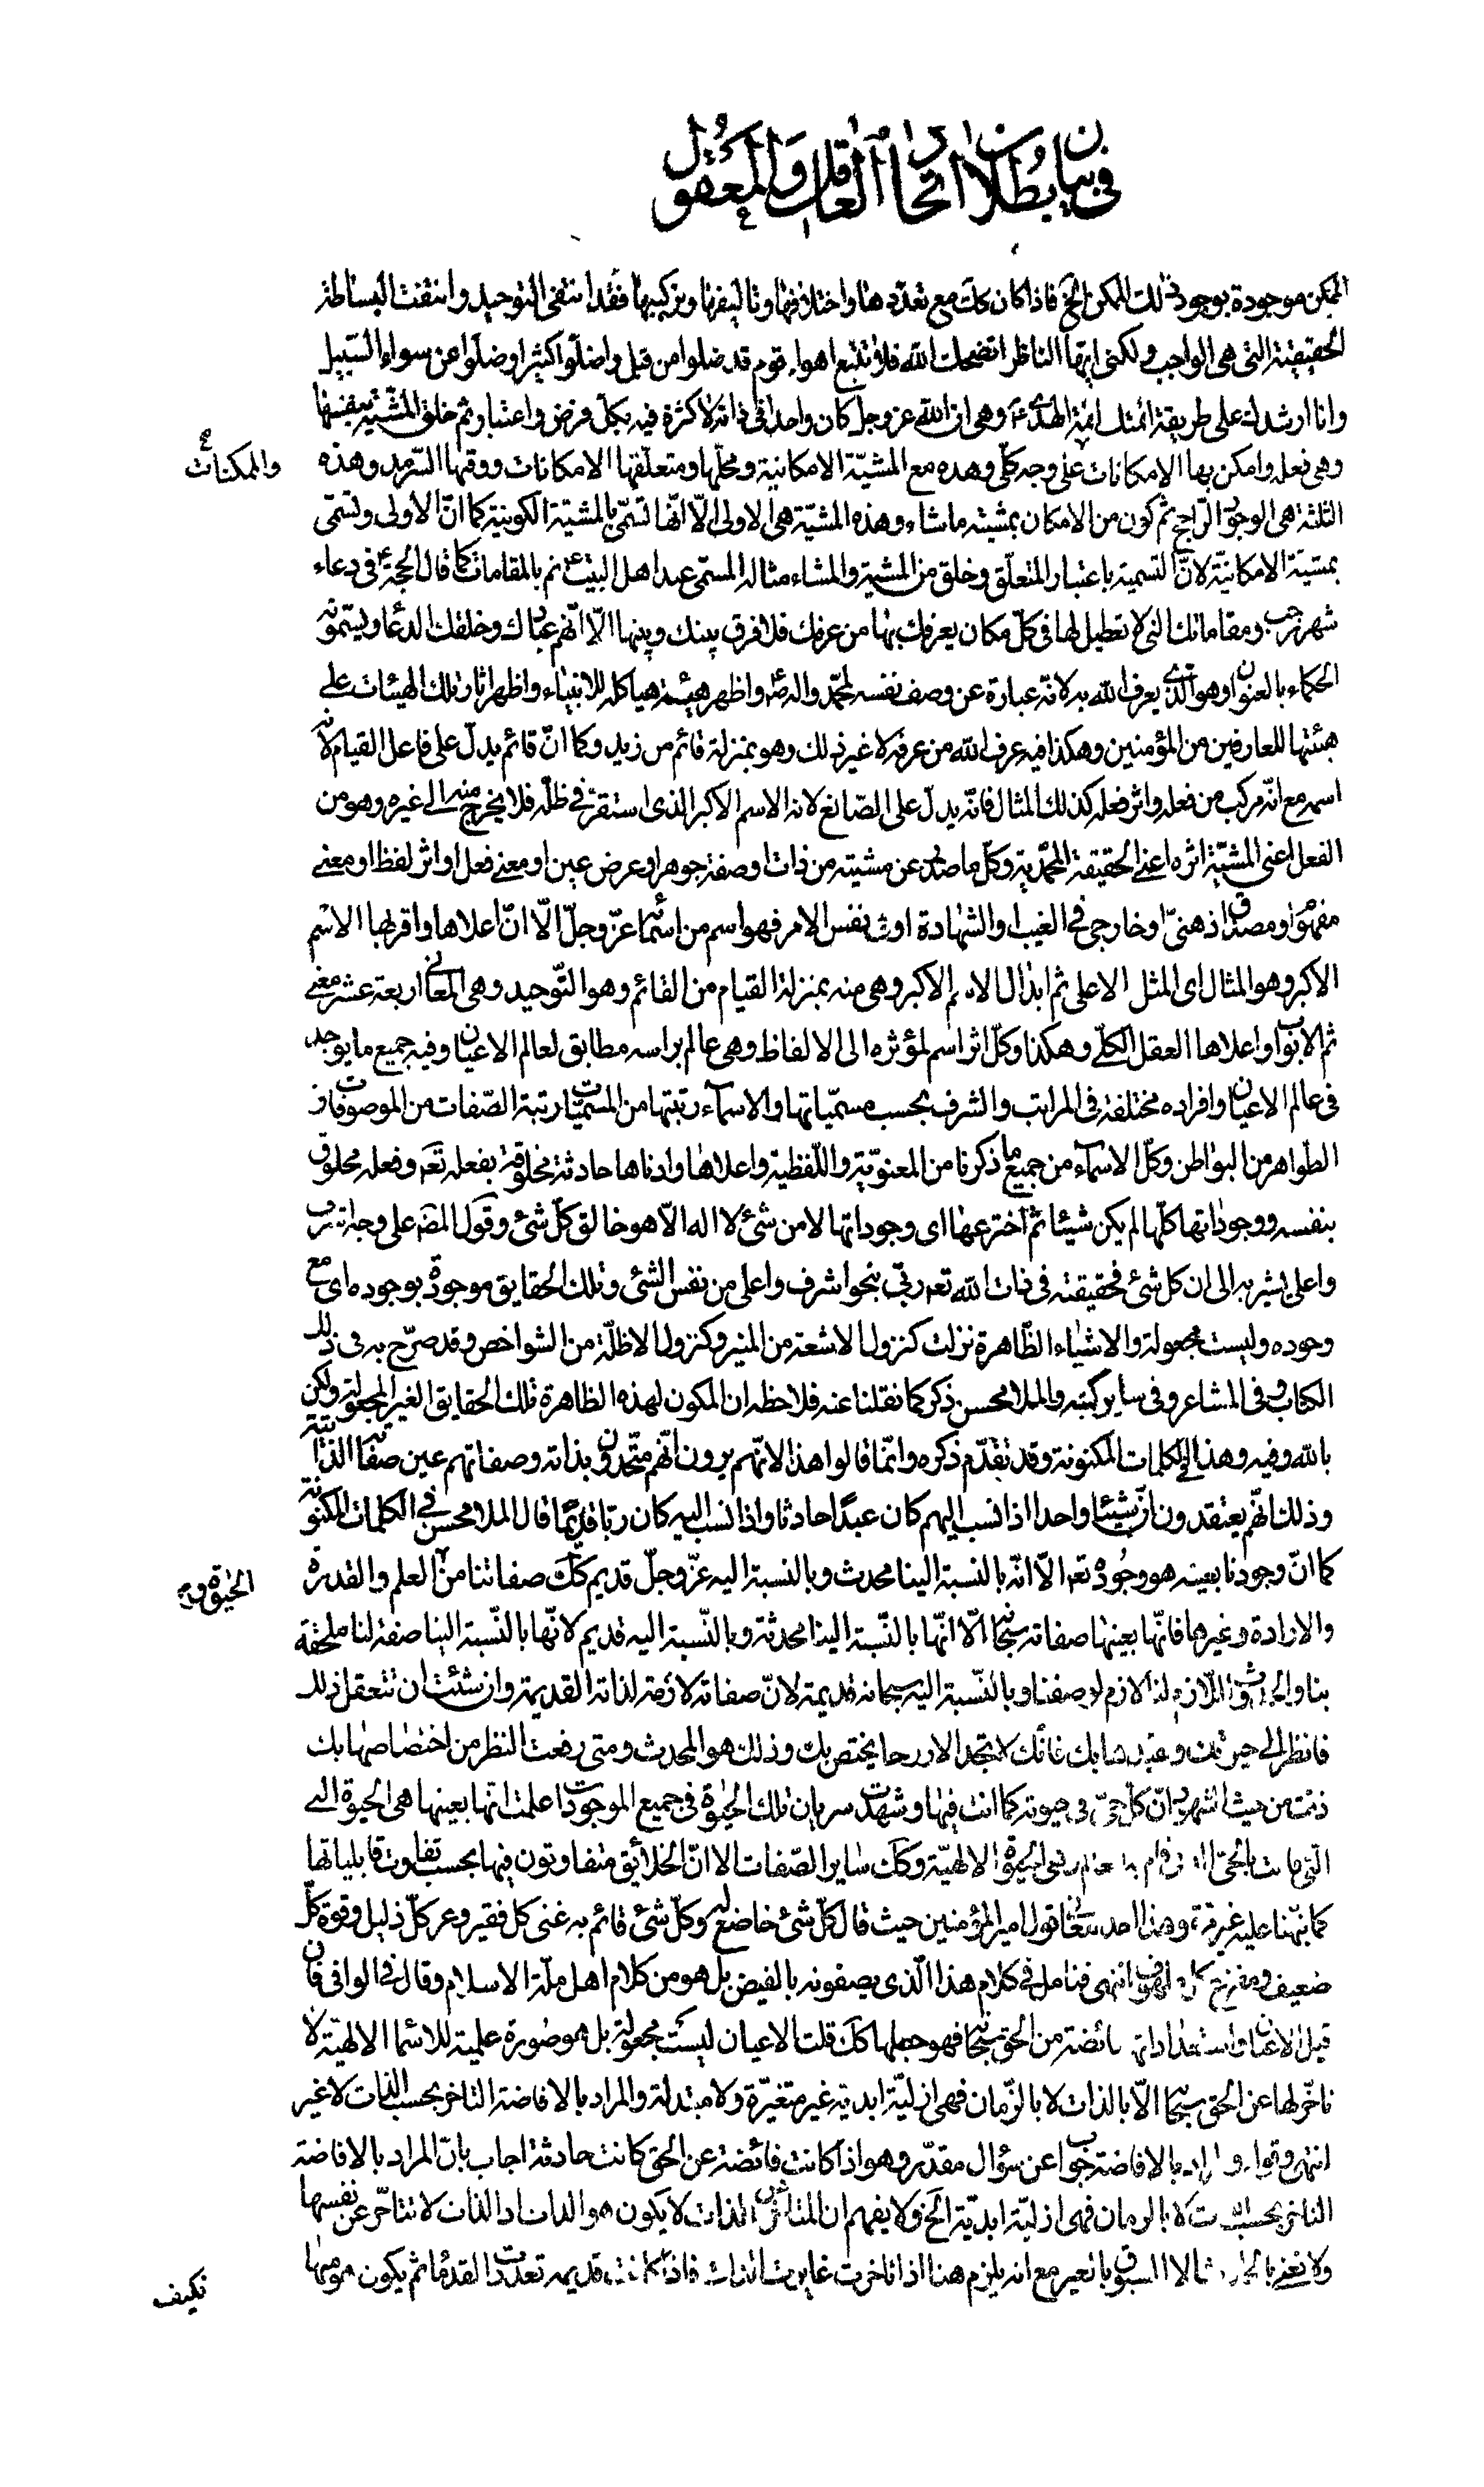 في بيان بطلان اتحاد العاقل والمعقول
الممكن موجودة بوجود ذلك الممكن الخ فاذا كان كك مع تعددها واختلافها وتاليفها وتركيبها فقد انتفى التوحيد وانتفت البساطة
الحقيقية التي هي الواجب ولكنى ايها الناظر انصحك لله فلا تتبع اهواء قوم قد ضلوا من قبل واضلّوا كثيرا وضلّوا عن سواء السّبيل
وانا ارشدك على طريقة ائمتك ائمة الهدى ع وهى ان الله عز وجل كان واحدا في ذاته لا كثرة فيه بكلّ فرض واعتبار ثم خلق المشيّة بنفسها
وهي فعله وامكن بها الامكانات على وجه كلّى وهذه مع المشيّة الامكانية ومحلّها ومتعلّقها الامكانات ووقتها السّرمد وهذه
والممكنات
الثلثة هى الوجود الرّاجح ثم كون من الامكان بمشيته ما شاء وهذه المشيّة هى الاولى الّا انّها تسمّى بالمشيّة الكونية كما انّ الاولى وتسمّى
بمشيّة الامكانيّة لانّ التسمية باعتبار المتعلّق وخلق من المشية والمشاء مثاله المسمّى عند اهل البيت ع بالمقامات كما قال الحجة ع في دعاء
شهر رجب ومقاماتك التي لا تعطيل لها في كلّ مكان يعرفك بها من عرفك فلا فرق بينك وبينها الّا انّهم عبادك وخلقك الدعاء ويسمّونه
الحكماء بالعنوان وهو الّذى يعرف الله به لانّه عبارة عن وصف نفسه لمحمّد واله ص واظهر هيئة هياكله للانبياء واظهر اثار تلك الهيئات على
هيئتها للعارفين من المؤمنين وهكذا فيه عرف الله من عرفه لا غير ذلك وهو بمنزلة قائم من زيد وكما انّ قائم يدلّ على فاعل القيام لانه
اسمه مع انّه مركب من فعله واثر فعله كذلك المثال فانّه يدلّ على الصّانع لانه الاسم الاكبر الذى استقرّ في ظلّه فلا يخرج منه الى غيره وهو من
الفعل اعنى المشيّة اثره اعنى الحقيقة المحمّدية وكلّ ما صدر عن مشيته من ذات او صفة جوهر او عرض عين او معنى فعل او اثر لفظ او معنى
مفهوم او مصداق ذهنىّ او خارجي في الغيب او الشهادة او في نفس الامر فهو اسم من اسمائه عزّ وجلّ الّا انّ اعلاها واقربها الاسم
الاكبر وهو المثال اى المثل الاعلى ثم ابدال الاسم الاكبر وهي منه بمنزلة القيام من القائم وهو التّوحيد وهى المعانى اربعة عشر معنى
ثم الابواب واعلاها العقل الكلّي وهكذا وكلّ اثر اسم لمؤثره الى الالفاظ وهى عالم براسه مطابق لعالم الاعيان وفيه جميع ما يوجد
في عالم الاعيان وافراده مختلفة في المراتب والشرف بحسب مسمّياتها والاسماء رتبتها من المسمّيات رتبة الصّفات من الموصوفات او
الظواهر من البواطن وكلّ الاسماء من جميع ما ذكرنا من المعنويّة واللّفظية واعلاها وادناها حادثة مخلوقة بفعله تعه وفعله مخلوق
بنفسه ووجوداتها كلّها لم يكن شيئا ثم اخترعها اى وجوداتها لا من شئ لا اله الّا هو خالق كلّ شئ وقول المصه على وجه اشرف
واعلى يشير به الى ان كل شئ فحقيقته في ذات الله تعه ربّي بنحو اشرف واعلى من نفس الشئ وتلك الحقايق موجودة بوجوده اى مع
وجوده وليست مجعولة والاشياء الظّاهرة نزلت كنزول الاشعة من المنير وكنزول الاظلّة من الشواخص وقد صرّح به في ذلك
الكتاب وفي المشاعر وفي ساير كتبه والملا محسن ذكر كما نقلنا عنه فلاحظه ان المكون لهذه الظاهرة تلك الحقايق الغير المجعولة ولكن
بالله وفيه وهذا في الكلمات المكنونة وقد تقدّم ذكره وانّما قالوا هذا لانّهم يرون انّهم متّحدون بذاته وصفاتهم عين صفاته الذاتية
وذلك انّهم يعتقدون انّ شيئا واحدا اذا نسب اليهم كان عبدا حادثا واذا نسب اليه كان ربّا قديما قال الملا محسن في الكلمات المكنونة
كما انّ وجودنا بعينه هو وجوده تعه الّا انّه بالنسبة الينا محدث وبالنسبة اليه عزّ وجلّ قديم كك صفاتنا من العلم والقدرة
الحيوة و
والارادة وغيرها فانّها بعينها صفاته سبحانه الّا انّها بالنّسبة الينا محدثة وبالنّسبة اليه قديم لانّها بالنّسبة الينا صفة لنا ملحقة
بنا والحدوث اللّازم لنا لازم لوصفنا وبالنّسبة اليه سبحانه قديمة لانّ صفاته لازمة لذاته القديمة وان شئت ان تتعقل ذلك
فانظر الى حيوتك وتقيدها بك فانّك لا تجد الا روحا يختص بك وذلك هو المحدث ومتى رفعت النظر من اختصاصها بك
وذقت من حيث الشهود انّ كلّ حىّ في حيوته كما انت فيها وشهدت سريان تلك الحيوة في جميع الموجودات علمت انها بعينها هى الحيوة التي
التي قامت بالحىّ الذى قام به العالم وهي الحيوة الالهيّة وكك ساير الصّفات الا انّ الخلائق متفاوتون فيها بحسب تفاوت قابلياتها
كما نبّهنا عليه غير مرّة وهذا احد معانى قول امير المؤمنين حيث قال كلّ شئ خاضع له وكلّ شئ قائم به غنى كل فقير وعز كلّ ذليل وقوة كلّ
ضعيف ومفزع كل ملهوف انتهى فتامل في كلام هذا الّذى يصفونه بالفيض بل هو من كلام اهل ملّة الاسلام وقال في الوافى فان
قيل الاعيان واستعداداتها فائضة من الحق سبحانه فهو جعلها كك قلت الاعيان ليست مجعولة بل هو صورة علمية للاسماء الالهيّة لا
تاخّر لها عن الحق سبحانه الّا بالذات لا بالزّمان فهى ازليّة ابدية غير متغيّرة ولا متبدلة والمراد بالافاضة التاخر بحسب الذات لا غير
انتهى وقوله والمراد بالافاضة جواب عن سؤال مقدّر وهو اذا كانت فائضة عن الحق كانت حادثة اجاب بانّ المراد بالافاضة
التاخر بحسب الذات لا بالزمان فهى ازليّة ابديّة الخ ولا يفهم ان المتاخر بالذات لا يكون هو الذات اذ الذات لا تتاخّر عن نفسها
ولا نعنى بالحادث الا المسبوق بالغير مع انه يلزم هنا اذا تاخرت غايرت الذات فاذا كانت قديمة تعددت القدماء ثم يكون موهما
تكيف